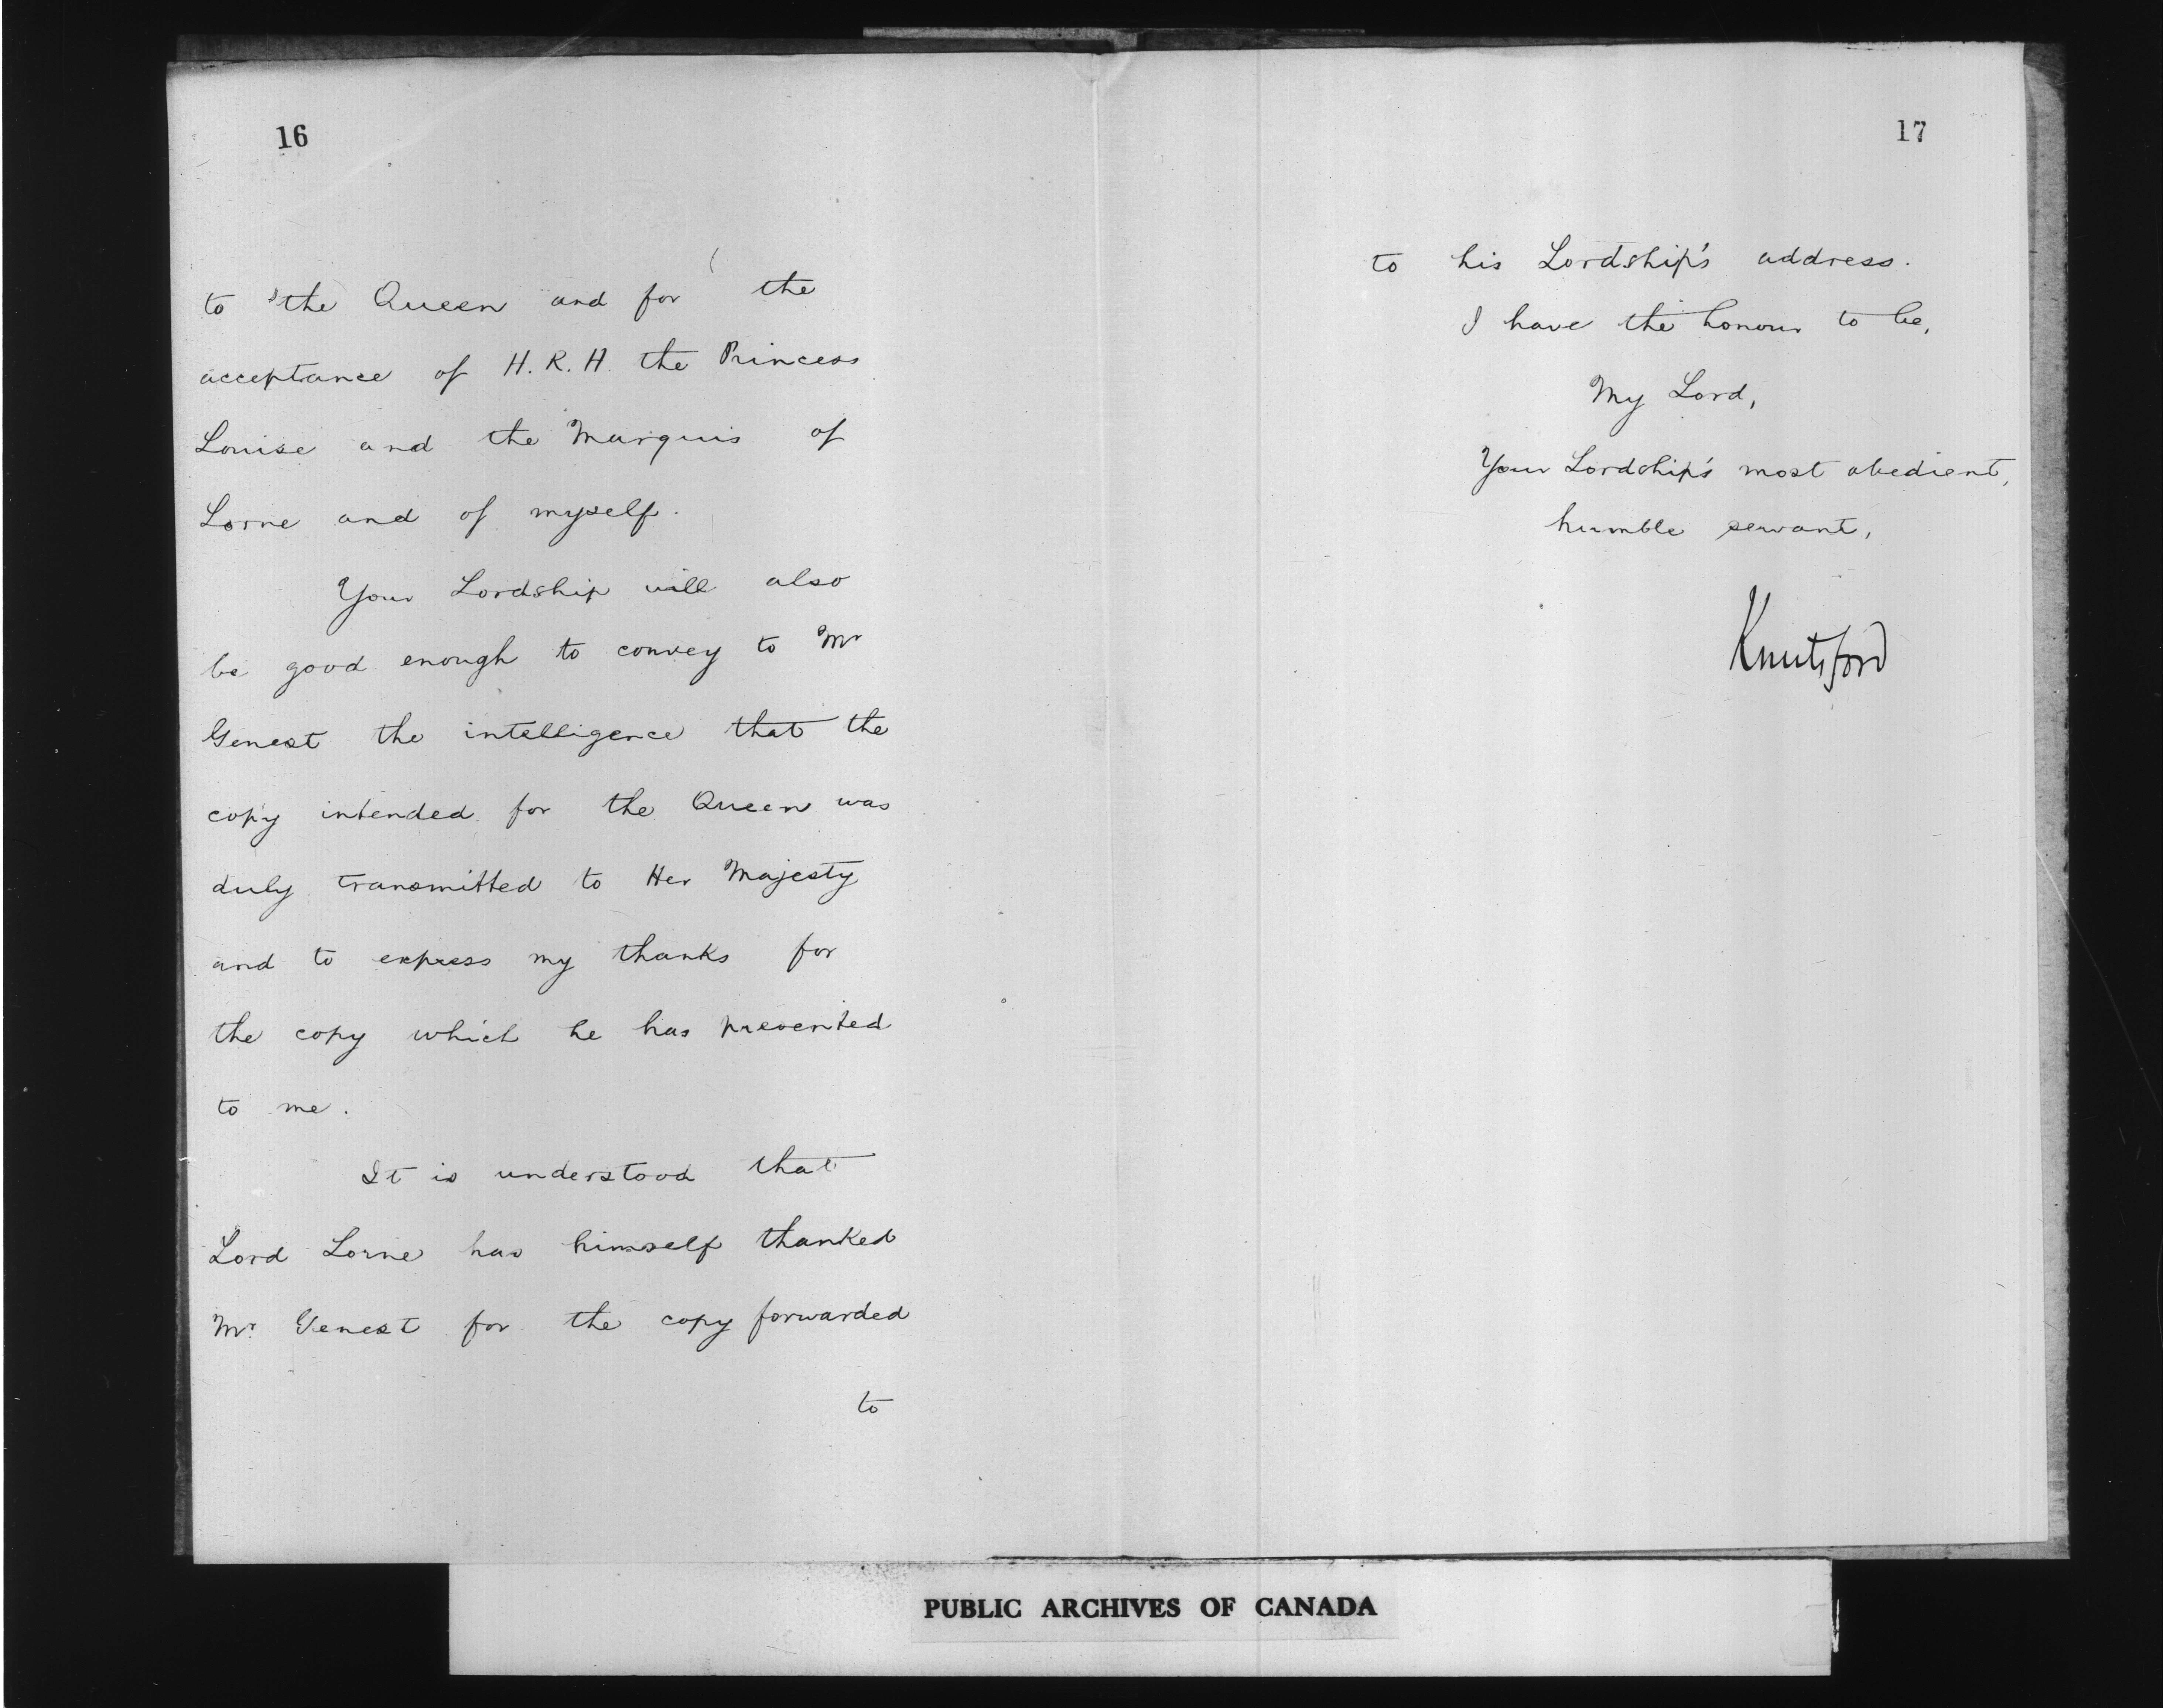 16
to the Queen and for the
acceptance of H.R.H. the Princess
Louise and the Marquis of
Lorne and of myself.
Your Lordship will also
be good enough to convey to Mr
Genest the intelligence that the
copy intended for the Queen was
duly transmitted to Her Majesty
and to express my thanks for
the copy which he has presented
to me.
It is understood that
Lord Lorne has himself thanked
Mr. Genest for the copy forwarded
to
17
to his Lordship's address.
I have the honour to be,
My Lord,
Your Lordship's most obedient,
humble servant,
Knutsford
PUBLIC ARCHIVES OF CANADA